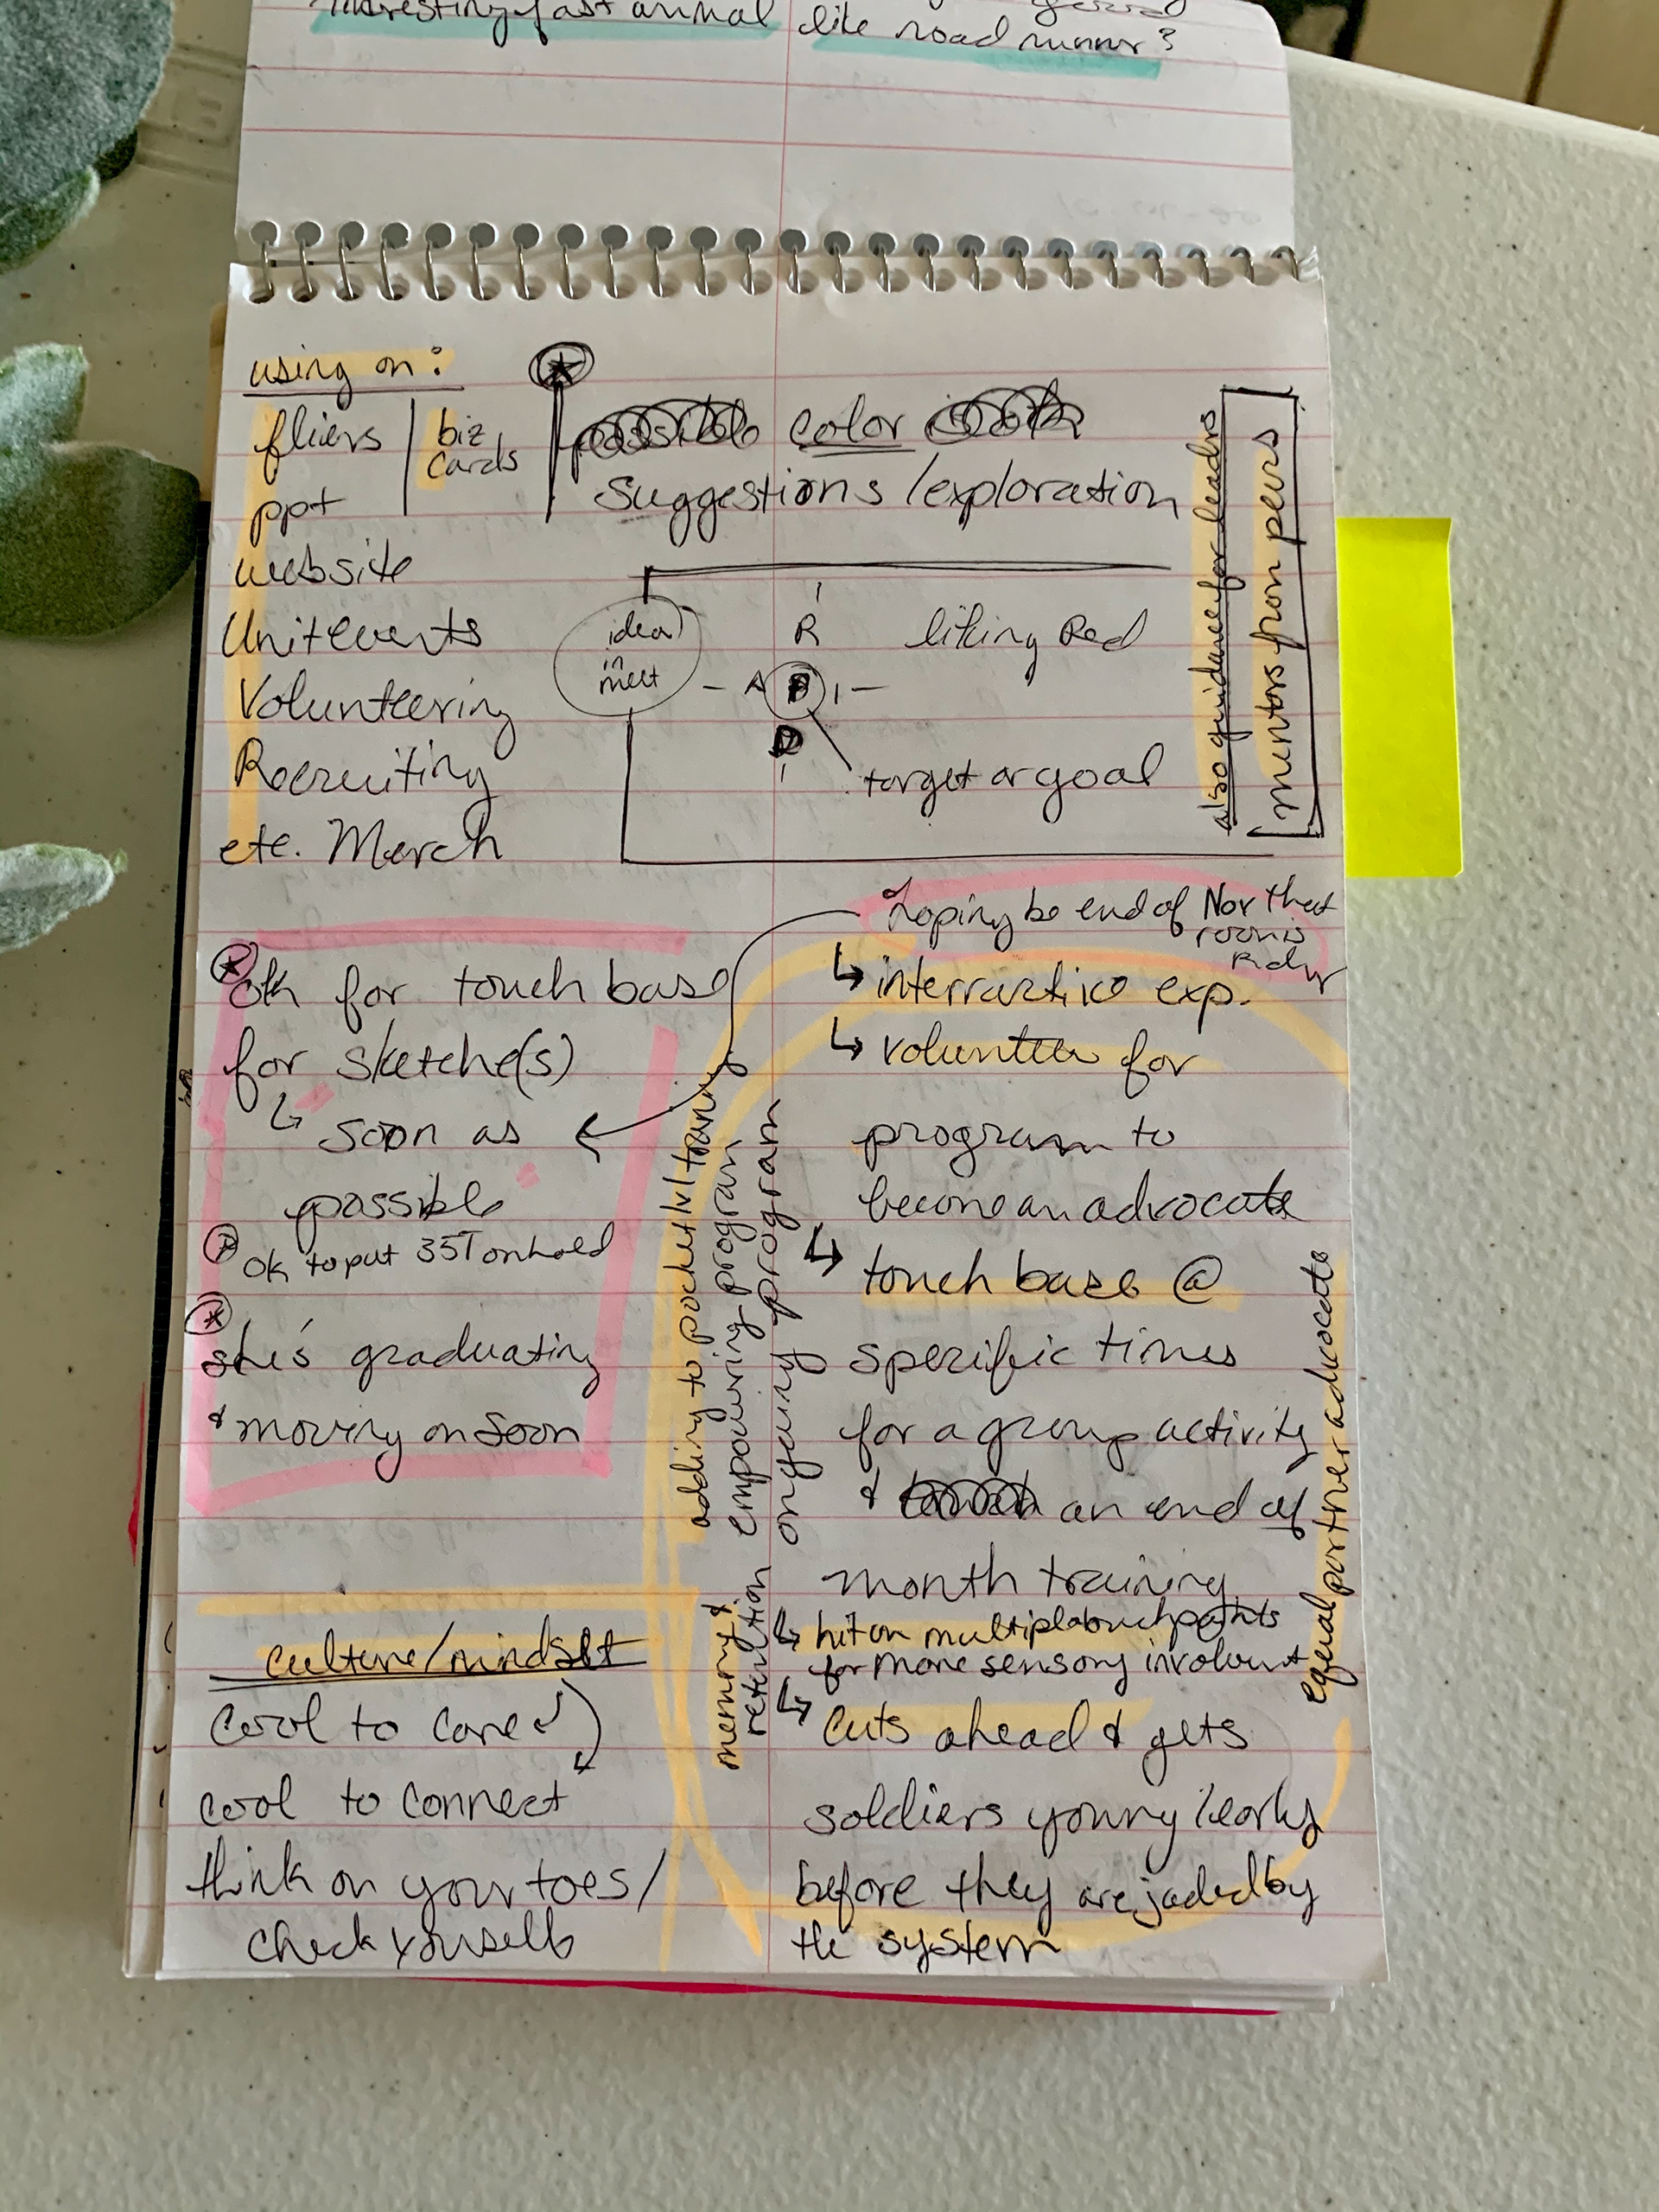 interesting fast animal like road runner?
using on:
fliers
biz
cards
ppt
website
Unit events
Volunteering
Recruiting
etc. Merch
color
suggestions/exploration
idea
in
meet
R
- A P I -
D
liking Red
target or goal
also guidance for leaders
mentors from peers
hoping be end of Nov that
room is
Rdy
ok for touch base
for sketche(s)
↳ soon as
possible
ok to put 35T on hold
she's graduating
& moving on soon
adding to pocket
empowering program
ongoing program
↳ interractive exp.
↳ volunteer for
program to
become an advocate
↳ touch base @
specific times
for a group activity
& an end of
month training
↳ hit on multiple touchpoints
for more sensory involvemt
↳ Cuts ahead & gets
soldiers young/early
before they are jaded by
the system
equal partner advocate
memory &
retention
culture/mindset
Cool to care
cool to connect
think on your toes/
check yourself